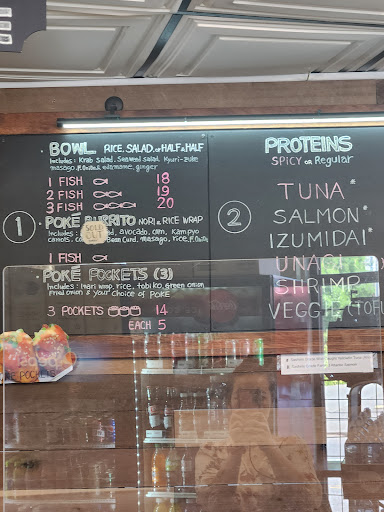 BOWL RICE, SALAD, or HALF & HALF
Includes: Krab salad, Seaweed salad, Kyuri-zuke
masago, edamame, ginger
1 FISH 18
2 FISH 19
3 FISH 20
1
POKÉ BURRITO NORI & RICE WRAP
SOLD OUT
avocado, corn, Kampyo
carrots, Bean Curd, masago, rice,
1 FISH
POKÉ POCKETS (3)
Includes: Inari wrap, rice, tobiko, Green onion
Fried onion & your choice of POKÉ
3 POCKETS 14
EACH 5
2
PROTEINS
SPICY or Regular
TUNA*
SALMON*
IZUMIDAI*
UNAGI
SHRIMP
VEGGIE (TOFU